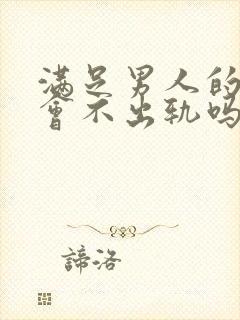 满足男人的
會不出轨吗
諦洛